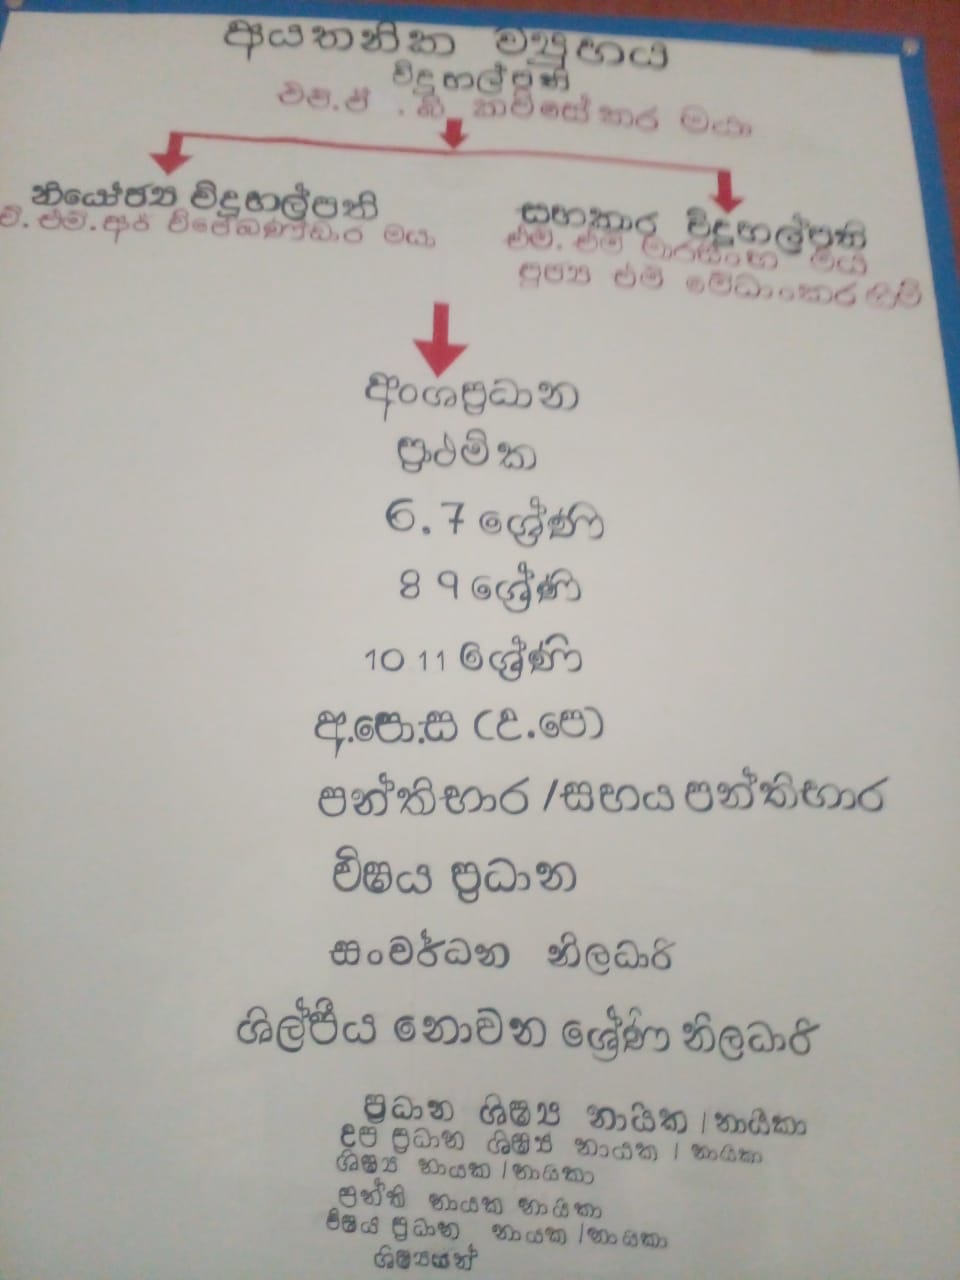 ආයතනික ව්‍යුහය
විදුහල්පති
එච්.ඒ .බී කවිසේකර මයා
නියෝජ්‍ය විදුහල්පති
ඩී. එම්.ආර් විජේබණ්ඩාර මයා
සහකාර විදුහල්පති
එම්. එම් මාරසිංහ මයා
පූජ්‍ය එම් මේධාංකර හිමි
අංශප්‍රධාන
ප්‍රාථමික
6.7 ශ්‍රේණි
8 9 ශ්‍රේණි
10 11 ශ්‍රේණි
අ.පො.ස (උ.පෙ)
පන්තිභාර /සහය පන්තිභාර
විෂය ප්‍රධාන
සංවර්ධන නිලධාරි
ශිල්පීය නොවන ශ්‍රේණි නිලධාරි
ප්‍රධාන ශිෂ්‍ය නායක / නායිකා
උප ප්‍රධාන ශිෂ්‍ය නායක / නායිකා
ශිෂ්‍ය නායක /නායිකා
පන්ති නායක නායිකා
විෂය ප්‍රධාන නායක /නායිකා
ශිෂ්‍යයන්